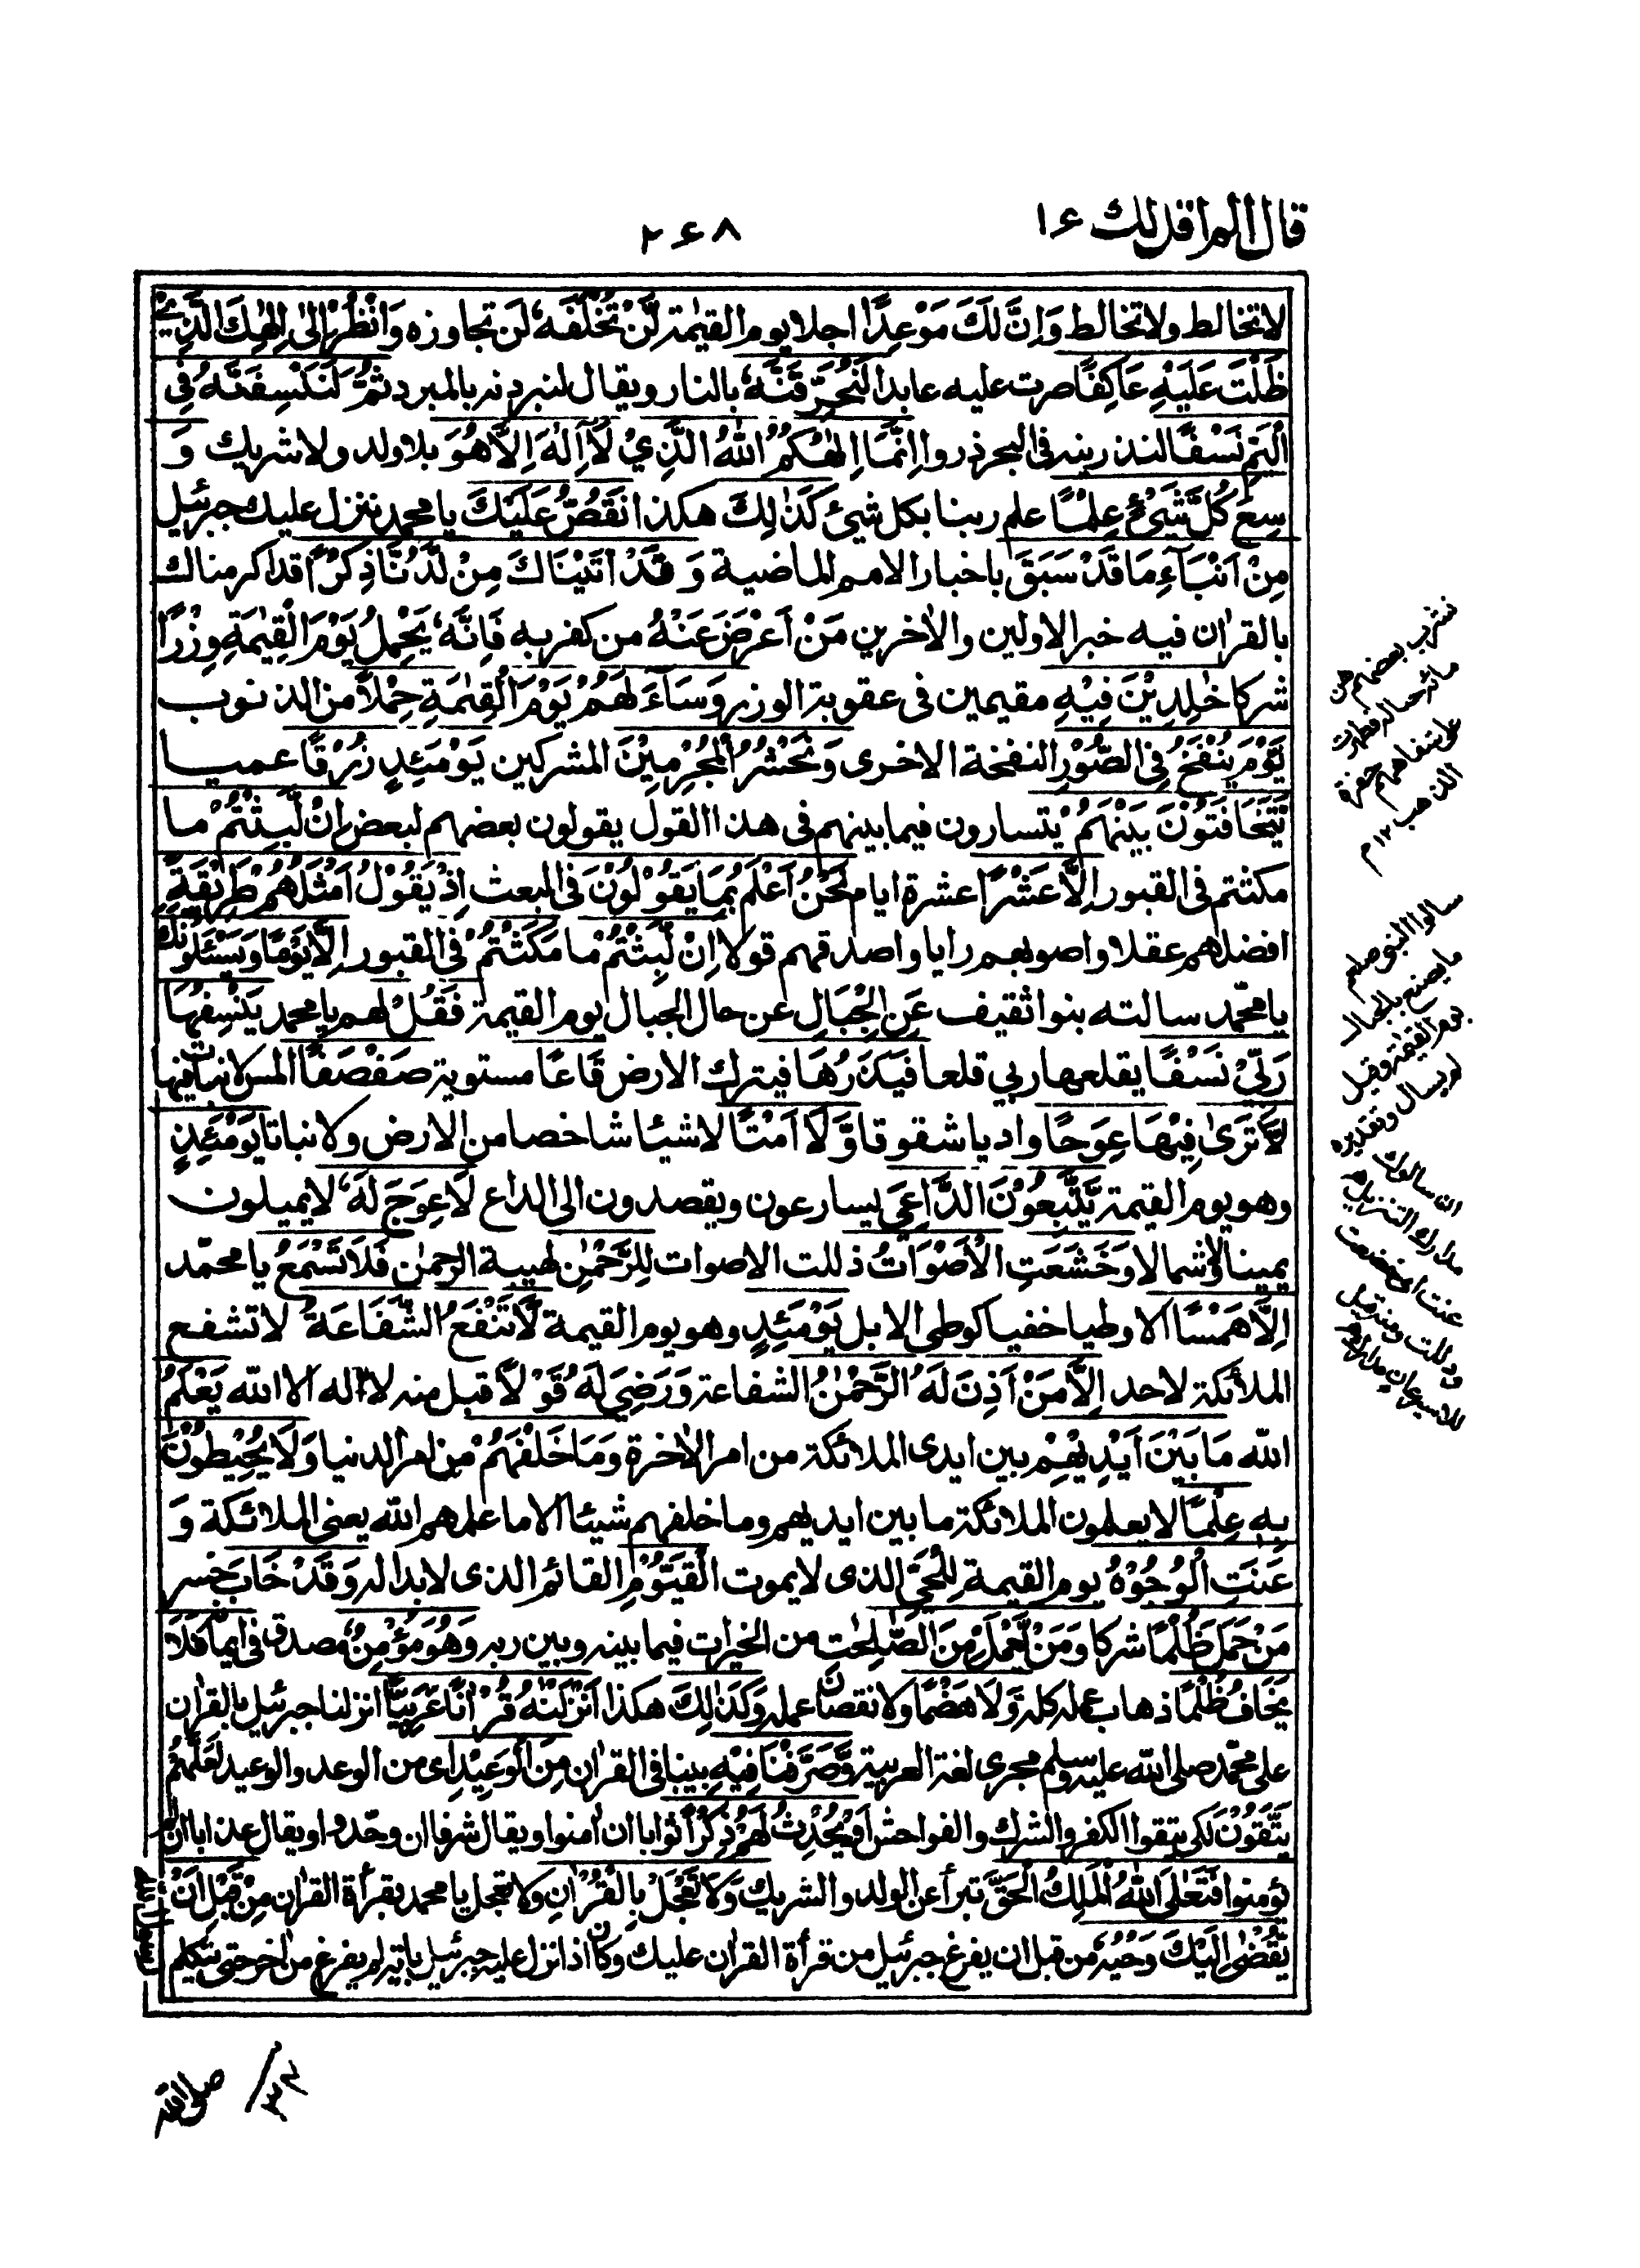 قال الم اقل لك ۱۶
۲۶۸
لا تخالط ولا تخالط وَاِنَّ لَكَ مَوْعِدًا اجلا يوم القيٰمة لَّنْ تُخْلَفَهٗ لن تجاوزه وَانْظُرْ اِلٰى اِلٰهِكَ الَّذِيْ
ظَلْتَ عَلَيْهِ عَاكِفًا صرت عليه عابدا لَنُحَرِّقَنَّهٗ بالنار ويقال لنبردنه بالمبرد ثُمَّ لَنَنْسِفَنَّهٗ فِي
الْيَمِّ نَسْفًا لنذرينه في البحر ذروا اِنَّمَا اِلٰهُكُمُ اللّٰهُ الَّذِيْ لَآ اِلٰهَ اِلَّا هُوَ بلا ولد ولا شريك وَ
سِعَ كُلَّ شَيْءٍ عِلْمًا علم ربنا بكل شيئ كَذٰلِكَ هكذا نَقُصُّ عَلَيْكَ يا محمد ننزل عليك جبرئيل
مِنْ اَنْبَآءِ مَا قَدْ سَبَقَ باخبار الامم الماضية وَقَدْ اٰتَيْنَاكَ مِنْ لَّدُنَّا ذِكْرًا قد اكرمناك
بالقرآن فيه خبر الاولين والاٰخرين مَنْ اَعْرَضَ عَنْهُ من كفر به فَاِنَّهٗ يَحْمِلُ يَوْمَ الْقِيٰمَةِ وِزْرًا
شركا خٰلِدِيْنَ فِيْهِ مقيمين في عقوبة الوزر وَسَآءَ لَهُمْ يَوْمَ الْقِيٰمَةِ حِمْلًا من الذنوب
يَّوْمَ يُنْفَخُ فِي الصُّوْرِ النفخة الاخرى وَنَحْشُرُ الْمُجْرِمِيْنَ المشركين يَوْمَئِذٍ زُرْقًا عميا
يَّتَخَافَتُوْنَ بَيْنَهُمْ يتسارون فيما بينهم في هذا القول يقولون بعضهم لبعض اِنْ لَّبِثْتُمْ ما
مكثتم في القبور اِلَّا عَشْرًا عشرة ايام نَحْنُ اَعْلَمُ بِمَا يَقُوْلُوْنَ في البعث اِذْ يَقُوْلُ اَمْثَلُهُمْ طَرِيْقَةً
افضلهم عقلا واصوبهم رايا واصدقهم قولا اِنْ لَّبِثْتُمْ ما مَكَثْتُمْ في القبور اِلَّا يَوْمًا وَيَسْئَلُوْنَكَ
يا محمّد سالته بنو ثقيف عَنِ الْجِبَالِ عن حال الجبال يوم القيمة فَقُلْ لهم يا محمد يَنْسِفُهَا
رَبِّيْ نَسْفًا يقلعها ربي قلعا فَيَذَرُهَا فيترك الارض قَاعًا مستوية صَفْصَفًا املس لا نبات فيها
لَّا تَرٰى فِيْهَا عِوَجًا واديا شقوقا وَّلَآ اَمْتًا لا شيئا شاخصا من الارض ولا نباتا يَوْمَئِذٍ
وهو يوم القيمة يَّتَّبِعُوْنَ الدَّاعِيَ يسارعون ويقصدون الى الداع لَا عِوَجَ لَهٗ لا يميلون
يمينا ولا شمالا وَخَشَعَتِ الْاَصْوَاتُ ذللت الاصوات لِلرَّحْمٰنِ لهيبة الرحمٰن فَلَا تَسْمَعُ يا محمّد
اِلَّا هَمْسًا الا وطيا خفيا كوطى الابل يَوْمَئِذٍ وهو يوم القيمة لَّا تَنْفَعُ الشَّفَاعَةُ لا تشفع
الملائكة لاحد اِلَّا مَنْ اَذِنَ لَهُ الرَّحْمٰنُ الشفاعة وَرَضِيَ لَهٗ قَوْلًا قبل منه لا اله الا الله يَعْلَمُ
الله مَا بَيْنَ اَيْدِيْهِمْ بين ايدى الملائكة من امر الاٰخرة وَمَا خَلْفَهُمْ من امر الدنيا وَلَا يُحِيْطُوْنَ
بِهٖ عِلْمًا لا يعلمون الملائكة ما بين ايديهم وما خلفهم شيئا الا ما علمهم الله يعنى الملائكة وَ
عَنَتِ الْوُجُوْهُ يوم القيمة لِلْحَيِّ الذى لا يموت الْقَيُّوْمِ القائم الذى لا بدا له وَقَدْ خَابَ خسر
مَنْ حَمَلَ ظُلْمًا شركا وَمَنْ يَّعْمَلْ مِنَ الصّٰلِحٰتِ من الخيرات فيما بينه وبين ربه وَهُوَ مُؤْمِنٌ مصدق في ايمانه فَلَا
يَخَافُ ظُلْمًا ذهاب عمله كله وَّلَا هَضْمًا ولا نقصان عمله وَكَذٰلِكَ هكذا اَنْزَلْنٰهُ قُرْاٰنًا عَرَبِيًّا انزلنا جبرئيل بالقرآن
على محمّد صلى الله عليه وسلم مجرى لغة العربية وَّصَرَّفْنَا فِيْهِ بينا فى القرآن مِنَ الْوَعِيْدِ اى من الوعد والوعيد لَعَلَّهُمْ
يَتَّقُوْنَ لكي يتقوا الكفر والشرك والفواحش اَوْ يُحْدِثُ لَهُمْ ذِكْرًا ثوابا ان اٰمنوا ويقال شرفا ان وحّدوا ويقال عذابا ان لم
يؤمنوا فَتَعٰلَى اللّٰهُ الْمَلِكُ الْحَقُّ تبرأ عن الولد والشريك وَلَا تَعْجَلْ بِالْقُرْاٰنِ ولا تعجل يا محمد بقرأة القرآن مِنْ قَبْلِ اَنْ
يُّقْضٰى اِلَيْكَ وَحْيُهٗ من قبل ان يفرغ جبرئيل من قرأة القرآن عليك وكان اذا نزل عليه جبرئيل باية لم يفرغ من اٰخر حتى يتكلم
رسول الله
سالوا النبي صلعم
ما يصنع بالجبال
يوم القيٰمة وقيل
لم يسال وتقديره
ان سالوك
مدارك التنزيل
عنت اى خضعت
وذلت ومنه قيل
للاسير عان مدارك
صلى الله